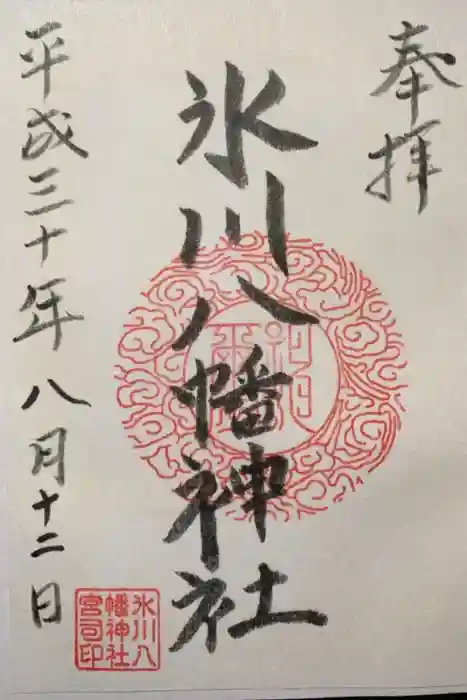 奉拝
氷川八幡神社
平成三十年八月十二日
氷川八
幡神社
宮司印